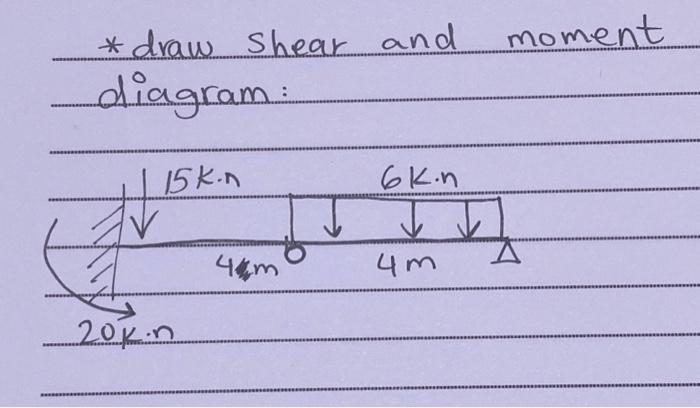 * draw shear and moment
diagram:
15k.n
6k.n
4m
4m
20k.n